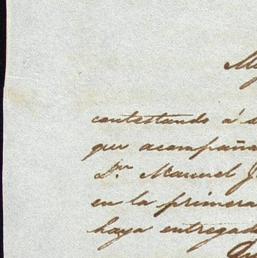 contestando á
que acompaña
Dn. Manuel
en la primera
haya entregad